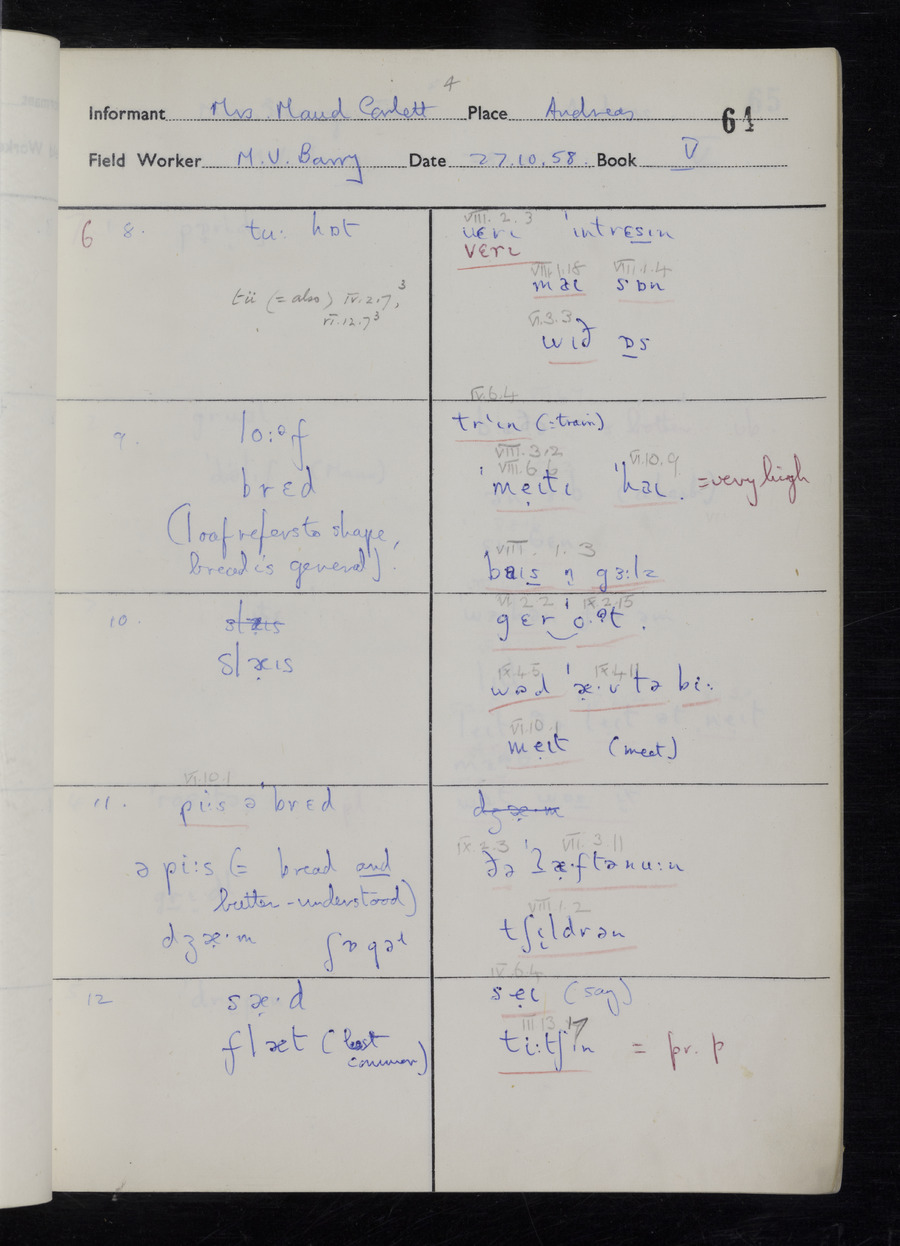 4
Informant Mrs. Maud Corlett Place Andreas 64
Field Worker M.V. Barry Date 27.10.58 Book V
6 8. tu: hɒt
tü (= also) IV.2.7,³
VI.12.7³
VIII.2.3
veri 'ɪntrɛsɪn
vɛrɪ
VIII.1.18 VIII.1.4
mæɪ sɒn
VI.3.3
wɪð ɒs
9. lo:ᵊf
brɛd
(loaf refers to shape,
bread is general).
IV.6.4
trɪn (= train)
VIII.3.2
VIII.6.6 VI.10.9
'meɪtɪ 'haɪ. = very high
VIII. 1. 3
baɪs ŋ gɜ:lz
10. slæɪs
slæɪs
VI.2.2 IX.2.15
gɛr o·ət.
IX.4.5 IX.4.11
wəd 'æ·v tə bi:
VI.10.1
meɪt (meat)
VI.10.1
11. pi:s ə 'brɛd
ə pi:s (= bread and
butter - understood)
dʒæ·m ʃɒgəɫ
dʒæ·m
IX.2.3 VII.3.11
ðə ʔæ·ftənu:n
VIII.1.2
tʃɪldrən
12 sæ·d
flæt (last
common)
IV.6.4
seɪ (say)
III.13.17
ti:tʃɪn = pr. p